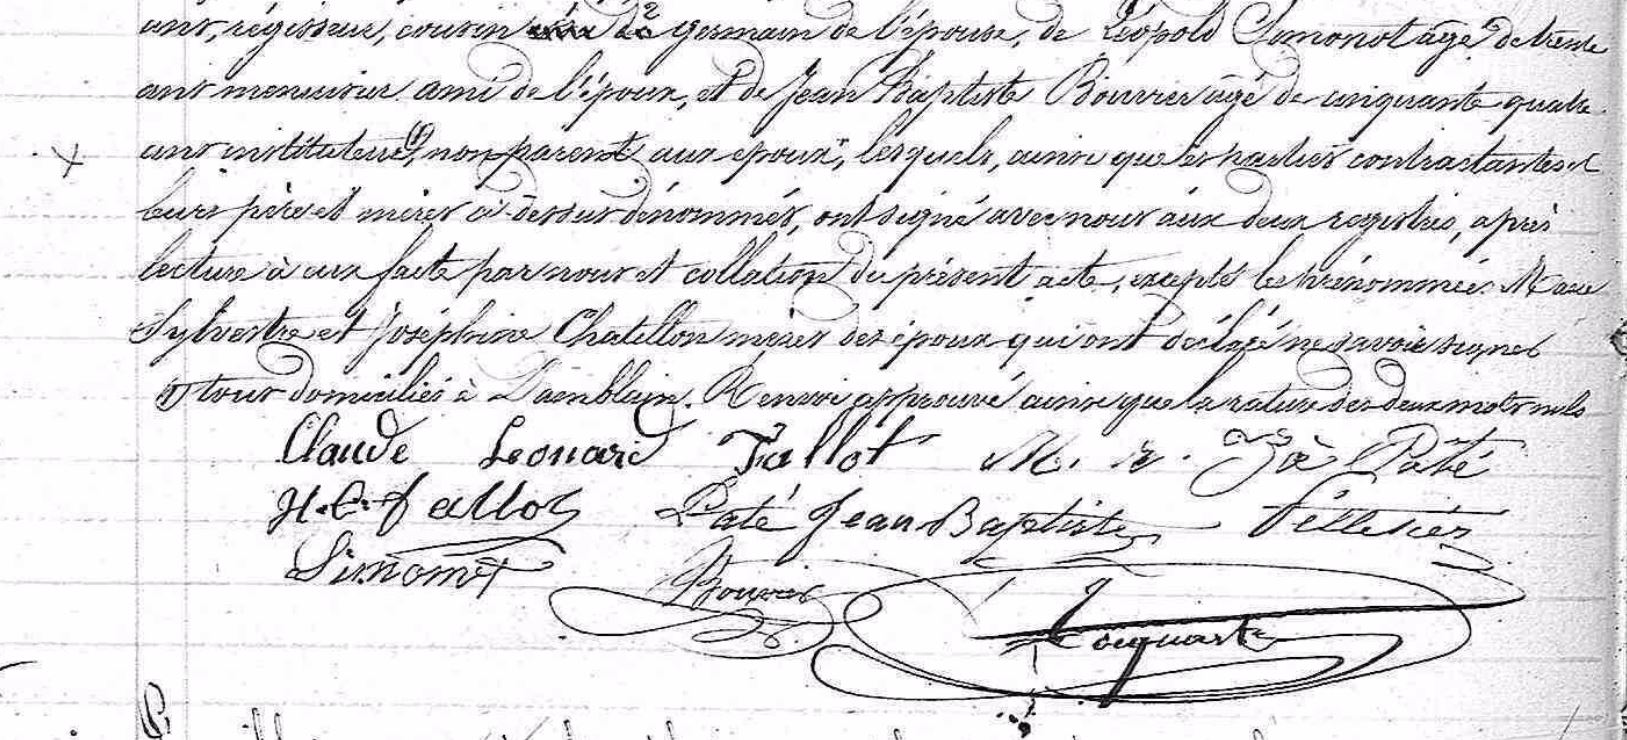 ans, régisseur, cousin germain de l'épouse, de Léopold Simonot âgé de trente
ans menuisier ami de l'époux, et de Jean Baptiste Bouvier âgé de cinquante quatre
ans instituteur (1), non parent aux époux, lesquels, ainsi que les parties contractantes et
leurs père et mères ci-dessus dénommés, ont signé avec nous aux deux registres, après
lecture à eux faite par nous et collation du présent acte, excepté les prénommées Marie
Sylvestre et Joséphine Chatellon mères des époux qui ont déclaré ne savoir signer
(1) tous domiciliés à Damblain. Renvoi approuvé ainsi que la rature des deux mots nuls
Claude Leonard Fallot M. Paté
H. C. Fallot Paté Jean Baptiste Pelletier
Simonot Bouvier